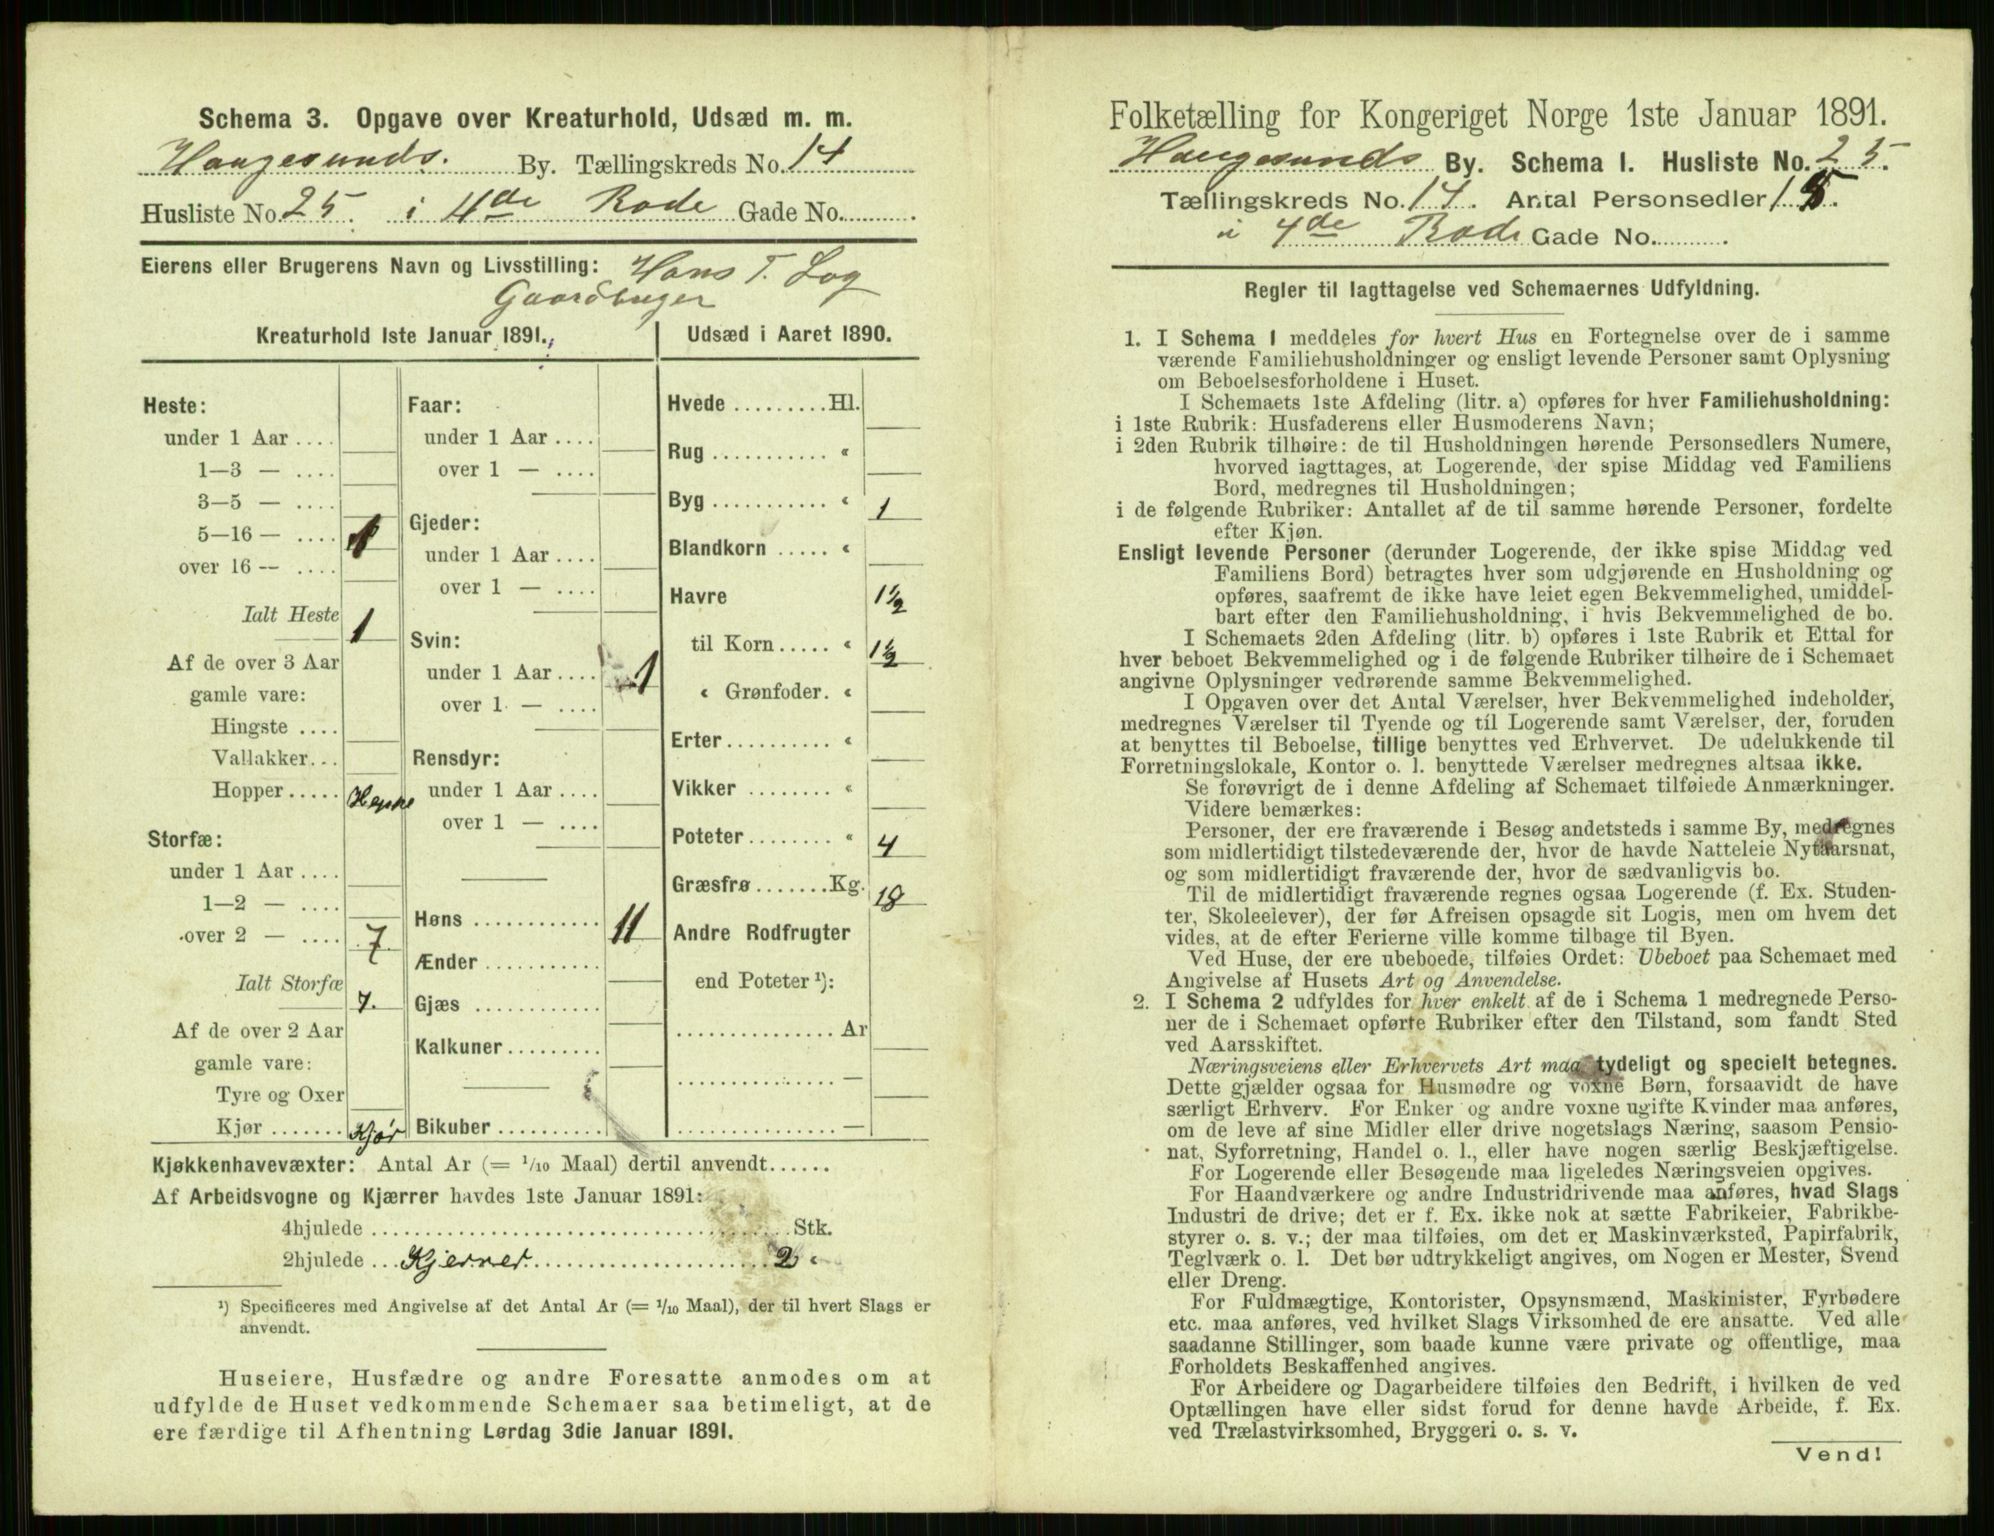 Schema 3. Opgave over Kreaturhold, Udsæd m. m.
Haugesunds. By. Tællingskreds No. 14
Husliste No. 25. i 4de Rode Gade No.
Eierens eller Brugerens Navn og Livsstilling: Hans T. Log
Gaardbruger
Kreaturhold 1ste Januar 1891.
Heste:
under 1 Aar ....
1—3 — ....
3—5 — ....
5—16 — .... 1
over 16 — ....
Ialt Heste 1
Af de over 3 Aar
gamle vare:
Hingste ....
Vallakker...
Hopper ..... Hoppe
Storfæ:
under 1 Aar ....
1—2 — ....
over 2 — .... 7
Ialt Storfæ 7.
Af de over 2 Aar
gamle vare:
Tyre og Oxer
Kjør ....... Kjør
Faar:
under 1 Aar ....
over 1 — ....
Gjeder:
under 1 Aar ....
over 1 — ....
Svin:
under 1 Aar .... 1
over 1 — ....
Rensdyr:
under 1 Aar ....
over 1 — ....
Høns ............ 11
Ænder ...........
Gjæs ............
Kalkuner.........
Bikuber ..........
Udsæd i Aaret 1890.
Hvede .........Hl.
Rug ........... «
Byg ........... « 1
Blandkorn ..... «
Havre 1 ½
til Korn ..... « 1 ½
« Grønfoder. «
Erter.......... «
Vikker ........ «
Poteter ........ « 4
Græsfrø .......Kg. 18
Andre Rodfrugter
end Poteter ¹):
............... Ar
............... —
............... —
Kjøkkenhavevæxter: Antal Ar (= 1/10 Maal) dertil anvendt......
Af Arbeidsvogne og Kjærrer havdes 1ste Januar 1891:
4hjulede ........................................ Stk.
2hjulede ... Kjerrer ........................ 2 «
¹) Specificeres med Angivelse af det Antal Ar (= 1/10 Maal), der til hvert Slags er
anvendt.
Huseiere, Husfædre og andre Foresatte anmodes om at
udfylde de Huset vedkommende Schemaer saa betimeligt, at de
ere færdige til Afhentning Lørdag 3die Januar 1891.
Folketælling for Kongeriget Norge 1ste Januar 1891.
Haugesunds By. Schema 1. Husliste No. 25.
Tællingskreds No. 14. Antal Personsedler 15.
i 4de Rode Gade No.
Regler til Iagttagelse ved Schemaernes Udfyldning.
1. I Schema 1 meddeles for hvert Hus en Fortegnelse over de i samme
værende Familiehusholdninger og ensligt levende Personer samt Oplysning
om Beboelsesforholdene i Huset.
I Schemaets 1ste Afdeling (litr. a) opføres for hver Familiehusholdning:
i 1ste Rubrik: Husfaderens eller Husmoderens Navn;
i 2den Rubrik tilhøire: de til Husholdningen hørende Personsedlers Numere,
hvorved iagttages, at Logerende, der spise Middag ved Familiens
Bord, medregnes til Husholdningen;
i de følgende Rubriker: Antallet af de til samme hørende Personer, fordelte
efter Kjøn.
Ensligt levende Personer (derunder Logerende, der ikke spise Middag ved
Familiens Bord) betragtes hver som udgjørende en Husholdning og
opføres, saafremt de ikke have leiet egen Bekvemmelighed, umiddel-
bart efter den Familiehusholdning, i hvis Bekvemmelighed de bo.
I Schemaets 2den Afdeling (litr. b) opføres i 1ste Rubrik et Ettal for
hver beboet Bekvemmelighed og i de følgende Rubriker tilhøire de i Schemaet
angivne Oplysninger vedrørende samme Bekvemmelighed.
I Opgaven over det Antal Værelser, hver Bekvemmelighed indeholder,
medregnes Værelser til Tyende og til Logerende samt Værelser, der, foruden
at benyttes til Beboelse, tillige benyttes ved Erhvervet. De udelukkende til
Forretningslokale, Kontor o. l. benyttede Værelser medregnes altsaa ikke.
Se forøvrigt de i denne Afdeling af Schemaet tilføiede Anmærkninger.
Videre bemærkes:
Personer, der ere fraværende i Besøg andetsteds i samme By, medregnes
som midlertidigt tilstedeværende der, hvor de havde Natteleie Nytaarsnat,
og som midlertidigt fraværende der, hvor de sædvanligvis bo.
Til de midlertidigt fraværende regnes ogsaa Logerende (f. Ex. Studen-
ter, Skoleelever), der før Afreisen opsagde sit Logis, men om hvem det
vides, at de efter Ferierne ville komme tilbage til Byen.
Ved Huse, der ere ubeboede, tilføies Ordet: Ubeboet paa Schemaet med
Angivelse af Husets Art og Anvendelse.
2. I Schema 2 udfyldes for hver enkelt af de i Schema 1 medregnede Perso-
ner de i Schemaet opførte Rubriker efter den Tilstand, som fandt Sted
ved Aarsskiftet.
Næringsveiens eller Erhvervets Art maa tydeligt og specielt betegnes.
Dette gjælder ogsaa for Husmødre og voxne Børn, forsaavidt de have
særligt Erhverv. For Enker og andre voxne ugifte Kvinder maa anføres,
om de leve af sine Midler eller drive nogetslags Næring, saasom Pensio-
nat, Syforretning, Handel o. l., eller have nogen særlig Beskjæftigelse.
For Logerende eller Besøgende maa ligeledes Næringsveien opgives.
For Haandværkere og andre Industridrivende maa anføres, hvad Slags
Industri de drive; det er f. Ex. ikke nok at sætte Fabrikeier, Fabrikbe-
styrer o. s. v.; der maa tilføies, om det er Maskinværksted, Papirfabrik,
Teglværk o. l. Det bør udtrykkeligt angives, om Nogen er Mester, Svend
eller Dreng.
For Fuldmægtige, Kontorister, Opsynsmænd, Maskinister, Fyrbødere
etc. maa anføres, ved hvilket Slags Virksomhed de ere ansatte. Ved alle
saadanne Stillinger, som baade kunne være private og offentlige, maa
Forholdets Beskaffenhed angives.
For Arbeidere og Dagarbeidere tilføies den Bedrift, i hvilken de ved
Optællingen have eller sidst forud for denne havde Arbeide, f. Ex.
ved Trælastvirksomhed, Bryggeri o. s. v.
Vend!